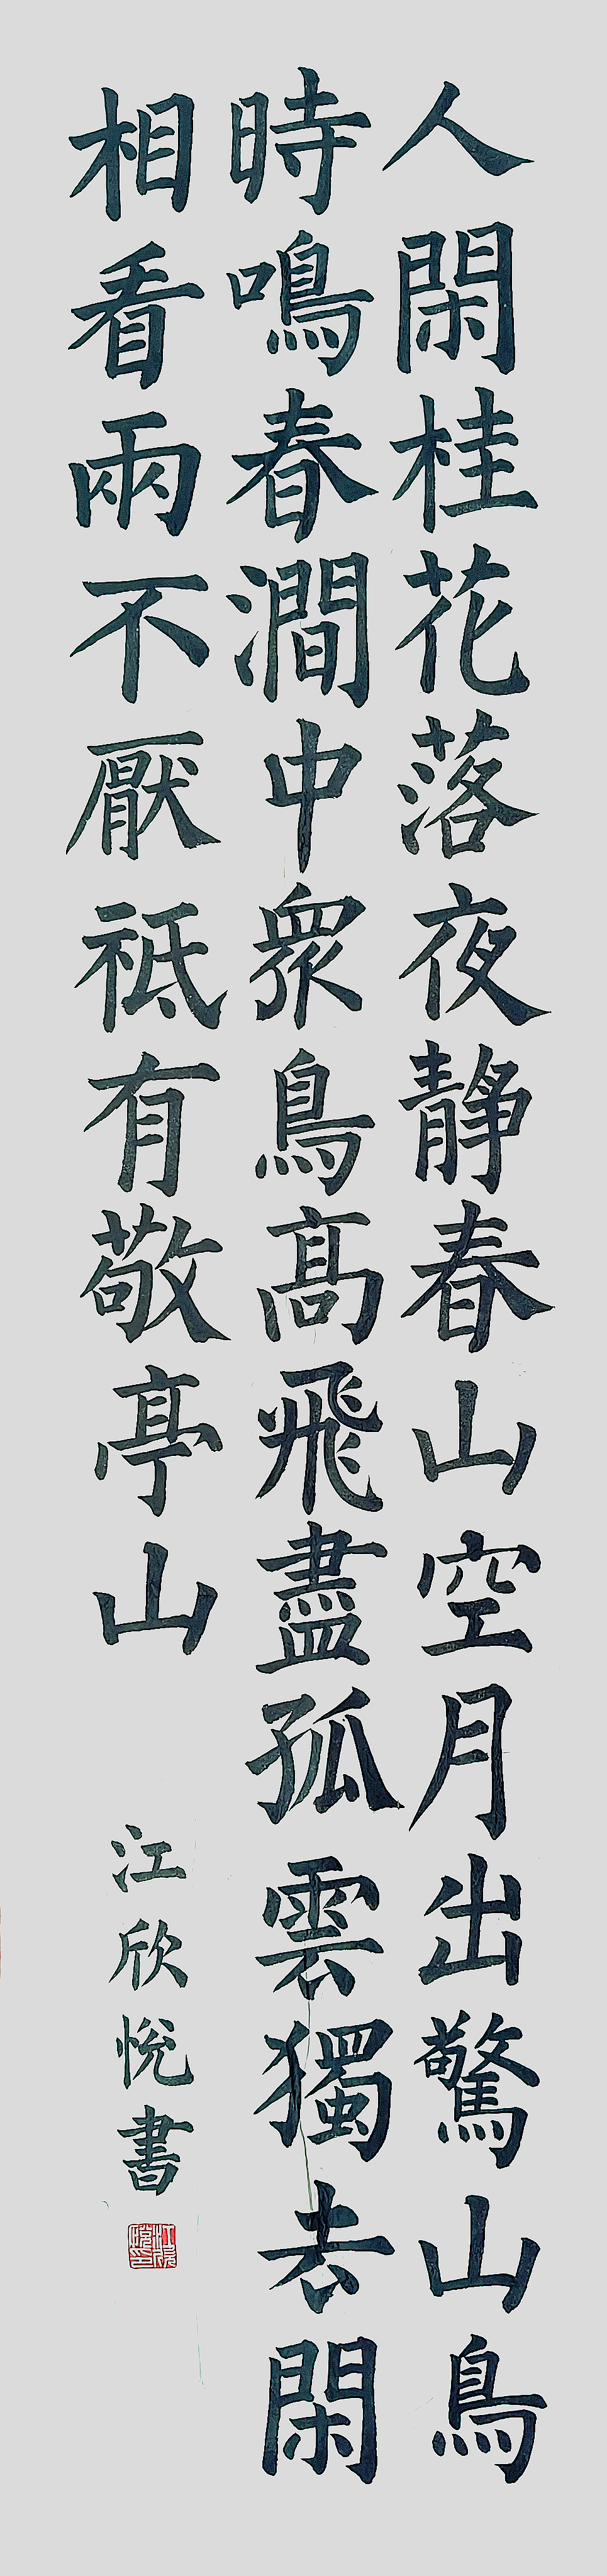 人閑桂花落夜靜春山空月出驚山鳥
時鳴春澗中衆鳥髙飛盡孤雲獨去閑
相看兩不厭祗有敬亭山
江欣悅書
江欣悅印